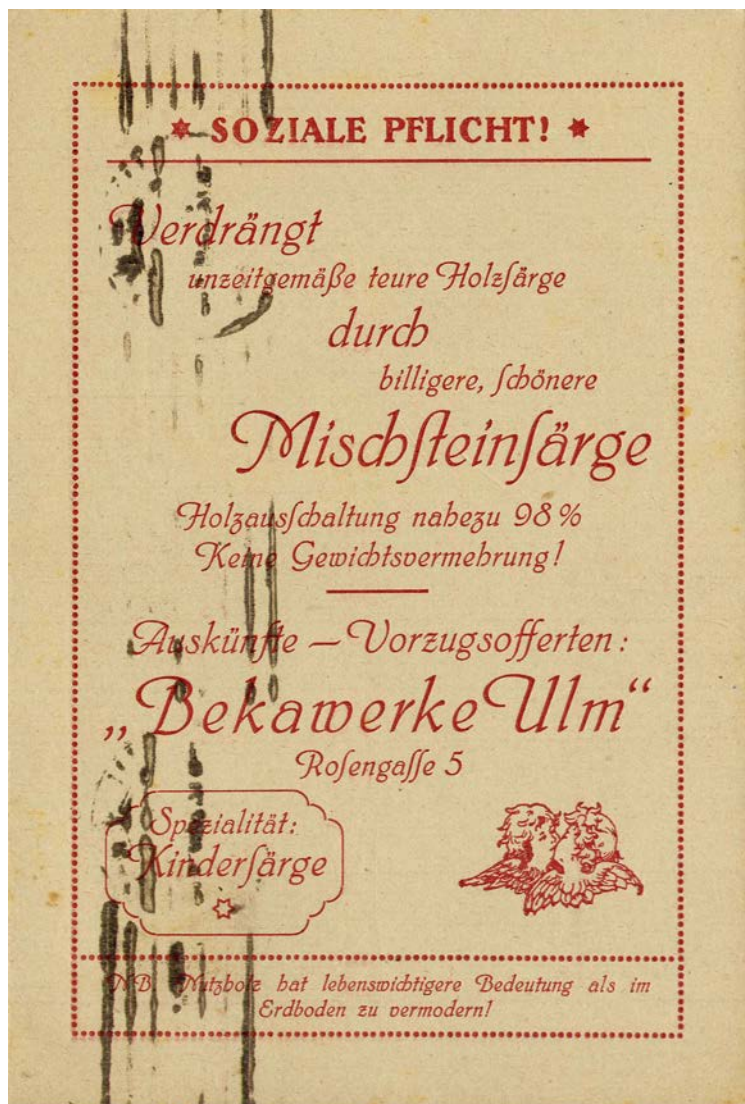 * SOZIALE PFLICHT! *
Verdrängt
unzeitgemäße teure Holzſärge
durch
billigere, ſchönere
Miſchſteinſärge
Holzausſchaltung nahezu 98 %
Keine Gewichtsvermehrung!
Auskünfte — Vorzugsofferten:
„Bekawerke Ulm“
Roſengaſſe 5
Spezialität:
Kinderſärge
NB. Nutzholz hat lebenswichtigere Bedeutung als im
Erdboden zu vermodern!